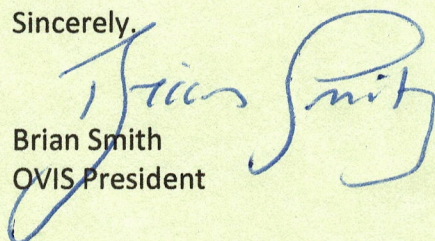 Sincerely.
Brian Smith
Brian Smith
OVIS President